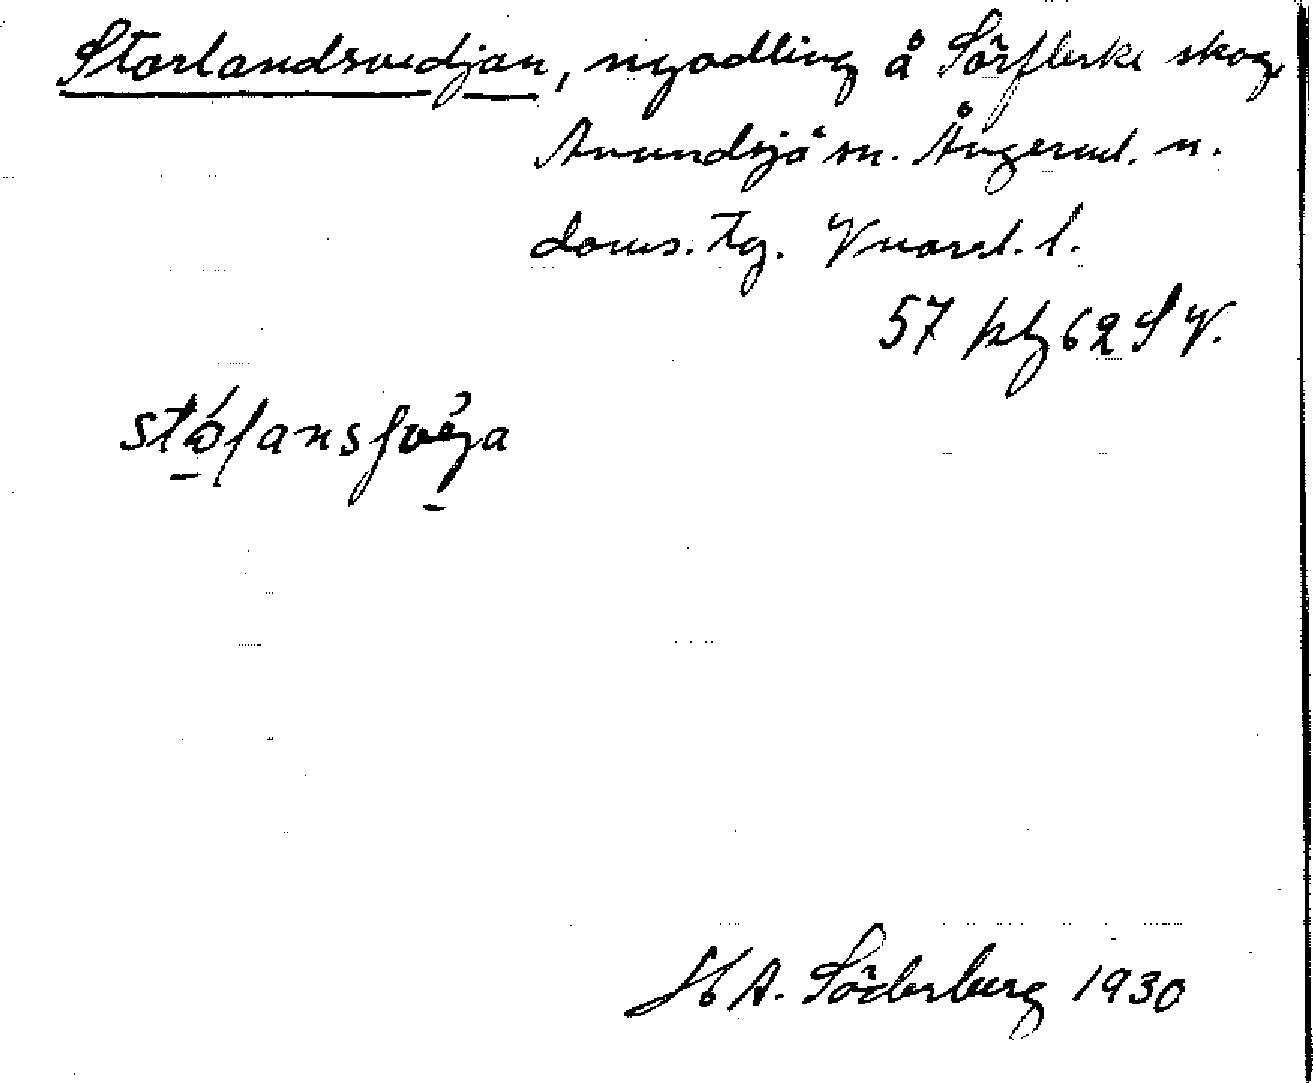 Storlandsvedjan, nyodling å Sörflärke skog,
Anundsjö sn. Ångerml. n.
doms. tg. Vnorrl. l.
57 bl 62 S V.
H A. Söderberg 1930